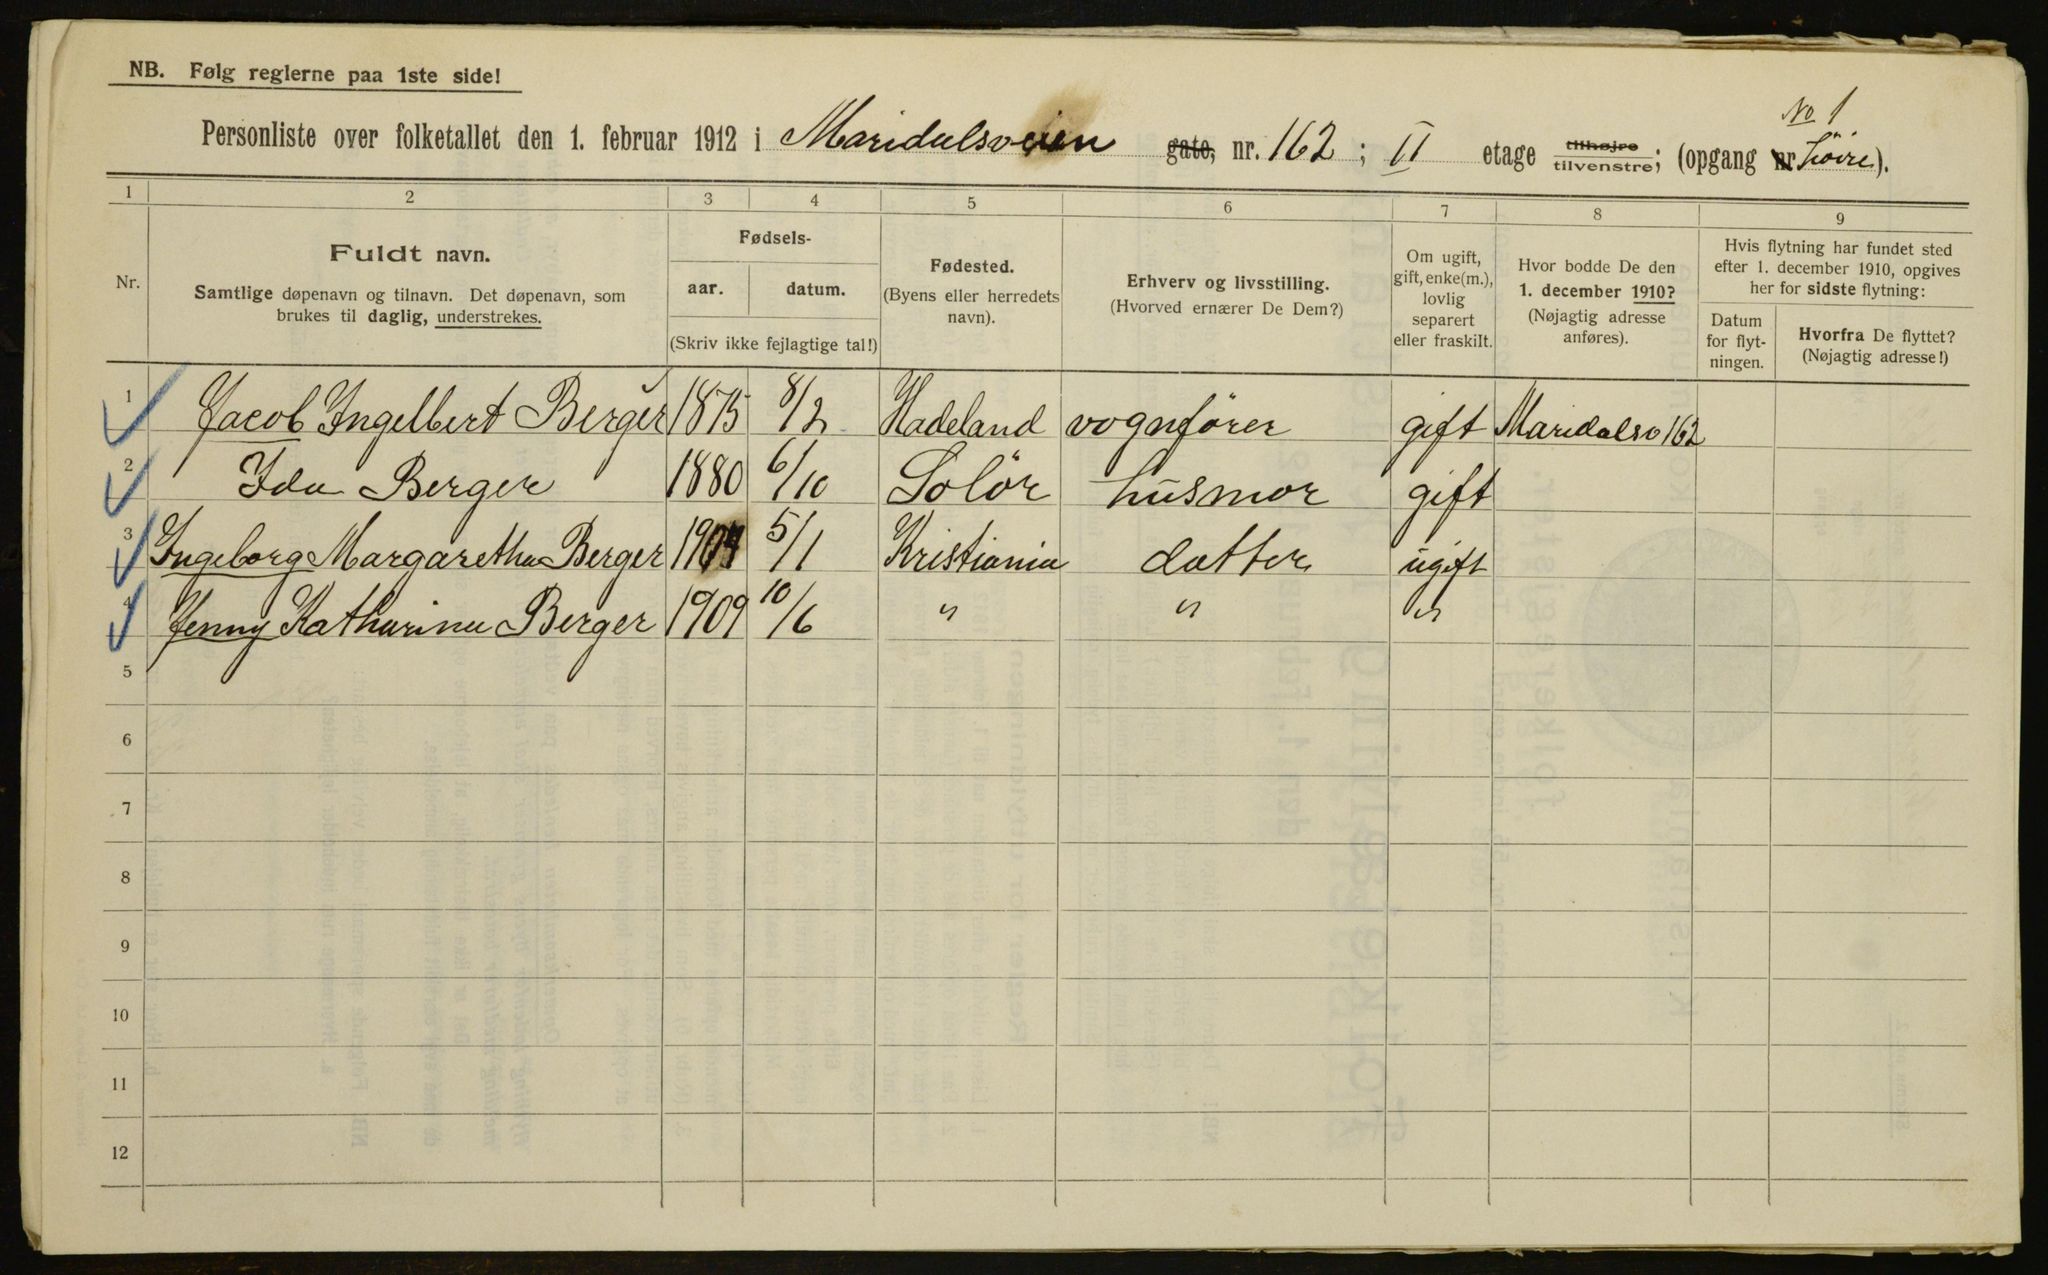 NB. Følg reglerne paa 1ste side!
No 1
Personliste over folketallet den 1. februar 1912 i Maridalsveien gate, nr. 162 ; II etage tilhøjre tilvenstre; (opgang nr. höire).
1 2 3 4 5 6 7 8 9
Nr.
Fuldt navn.
Samtlige døpenavn og tilnavn. Det døpenavn, som
brukes til daglig, understrekes.
Fødsels-
aar. datum.
(Skriv ikke fejlagtige tal!)
Fødested.
(Byens eller herredets
navn).
Erhverv og livsstilling.
(Hvorved ernærer De Dem?)
Om ugift,
gift, enke(m.),
lovlig
separert
eller fraskilt.
Hvor bodde De den
1. december 1910?
(Nøjagtig adresse
anføres).
Hvis flytning har fundet sted
efter 1. december 1910, opgives
her for sidste flytning:
Datum
for flyt-
ningen.
Hvorfra De flyttet?
(Nøjagtig adresse!)
1 Jacob Ingelbert Berger 1875 8/2 Hadeland vognförer gift Maridalsv 162
2 Ida Berger 1880 6/10 Solör husmor gift
3 Ingeborg Margaretha Berger 5/1 Kristiania datter ugift
4 Jenny Katharina Berger 1909 10/6 " " "
5
6
7
8
9
10
11
12